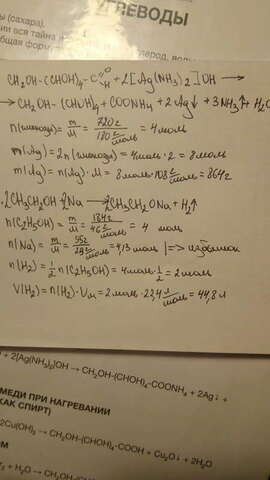 УГЛЕВОДЫ
(сахара),
CH₂OH-(CHOH)₄-C=O-H + 2[Ag(NH₃)₂]OH →
→ CH₂OH-(CHOH)₄ + COONH₄ + 2Ag↓ + 3NH₃↑ + H₂O
n(глюкозы) = m/M = 720г/180 г/моль = 4 моль
n(Ag) = 2n(глюкозы) = 4моль·2 = 8моль
m(Ag) = n(Ag)·M = 8моль·108 г/моль = 864г
2CH₃CH₂OH + 2Na → 2CH₃CH₂ONa + H₂↑
n(C₂H₅OH) = m/M = 184г/46 г/моль = 4 моль
n(Na) = m/M = 95г/23 г/моль = 4,13 моль |=> избыток
n(H₂) = 1/2 n(C₂H₅OH) = 4моль·1/2 = 2моль
V(H₂) = n(H₂)·Vм = 2моль·22,4 л/моль = 44,8 л
+ 2[Ag(NH₃)₂]OH → CH₂OH-(CHOH)₄-COONH₄ + 2Ag↓ +
МЕДИ ПРИ НАГРЕВАНИИ
КАК СПИРТ)
2Cu(OH)₂ → CH₂OH-(CHOH)₄-COOH + Cu₂O↓ + 2H₂O
+ H₂O → CH₂OH-(CHOH)₄-